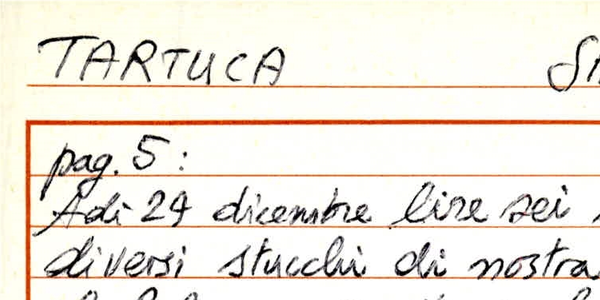 TARTUCA
pag. 5:
Adì 24 dicembre lire sei
diversi stucchi di nostra